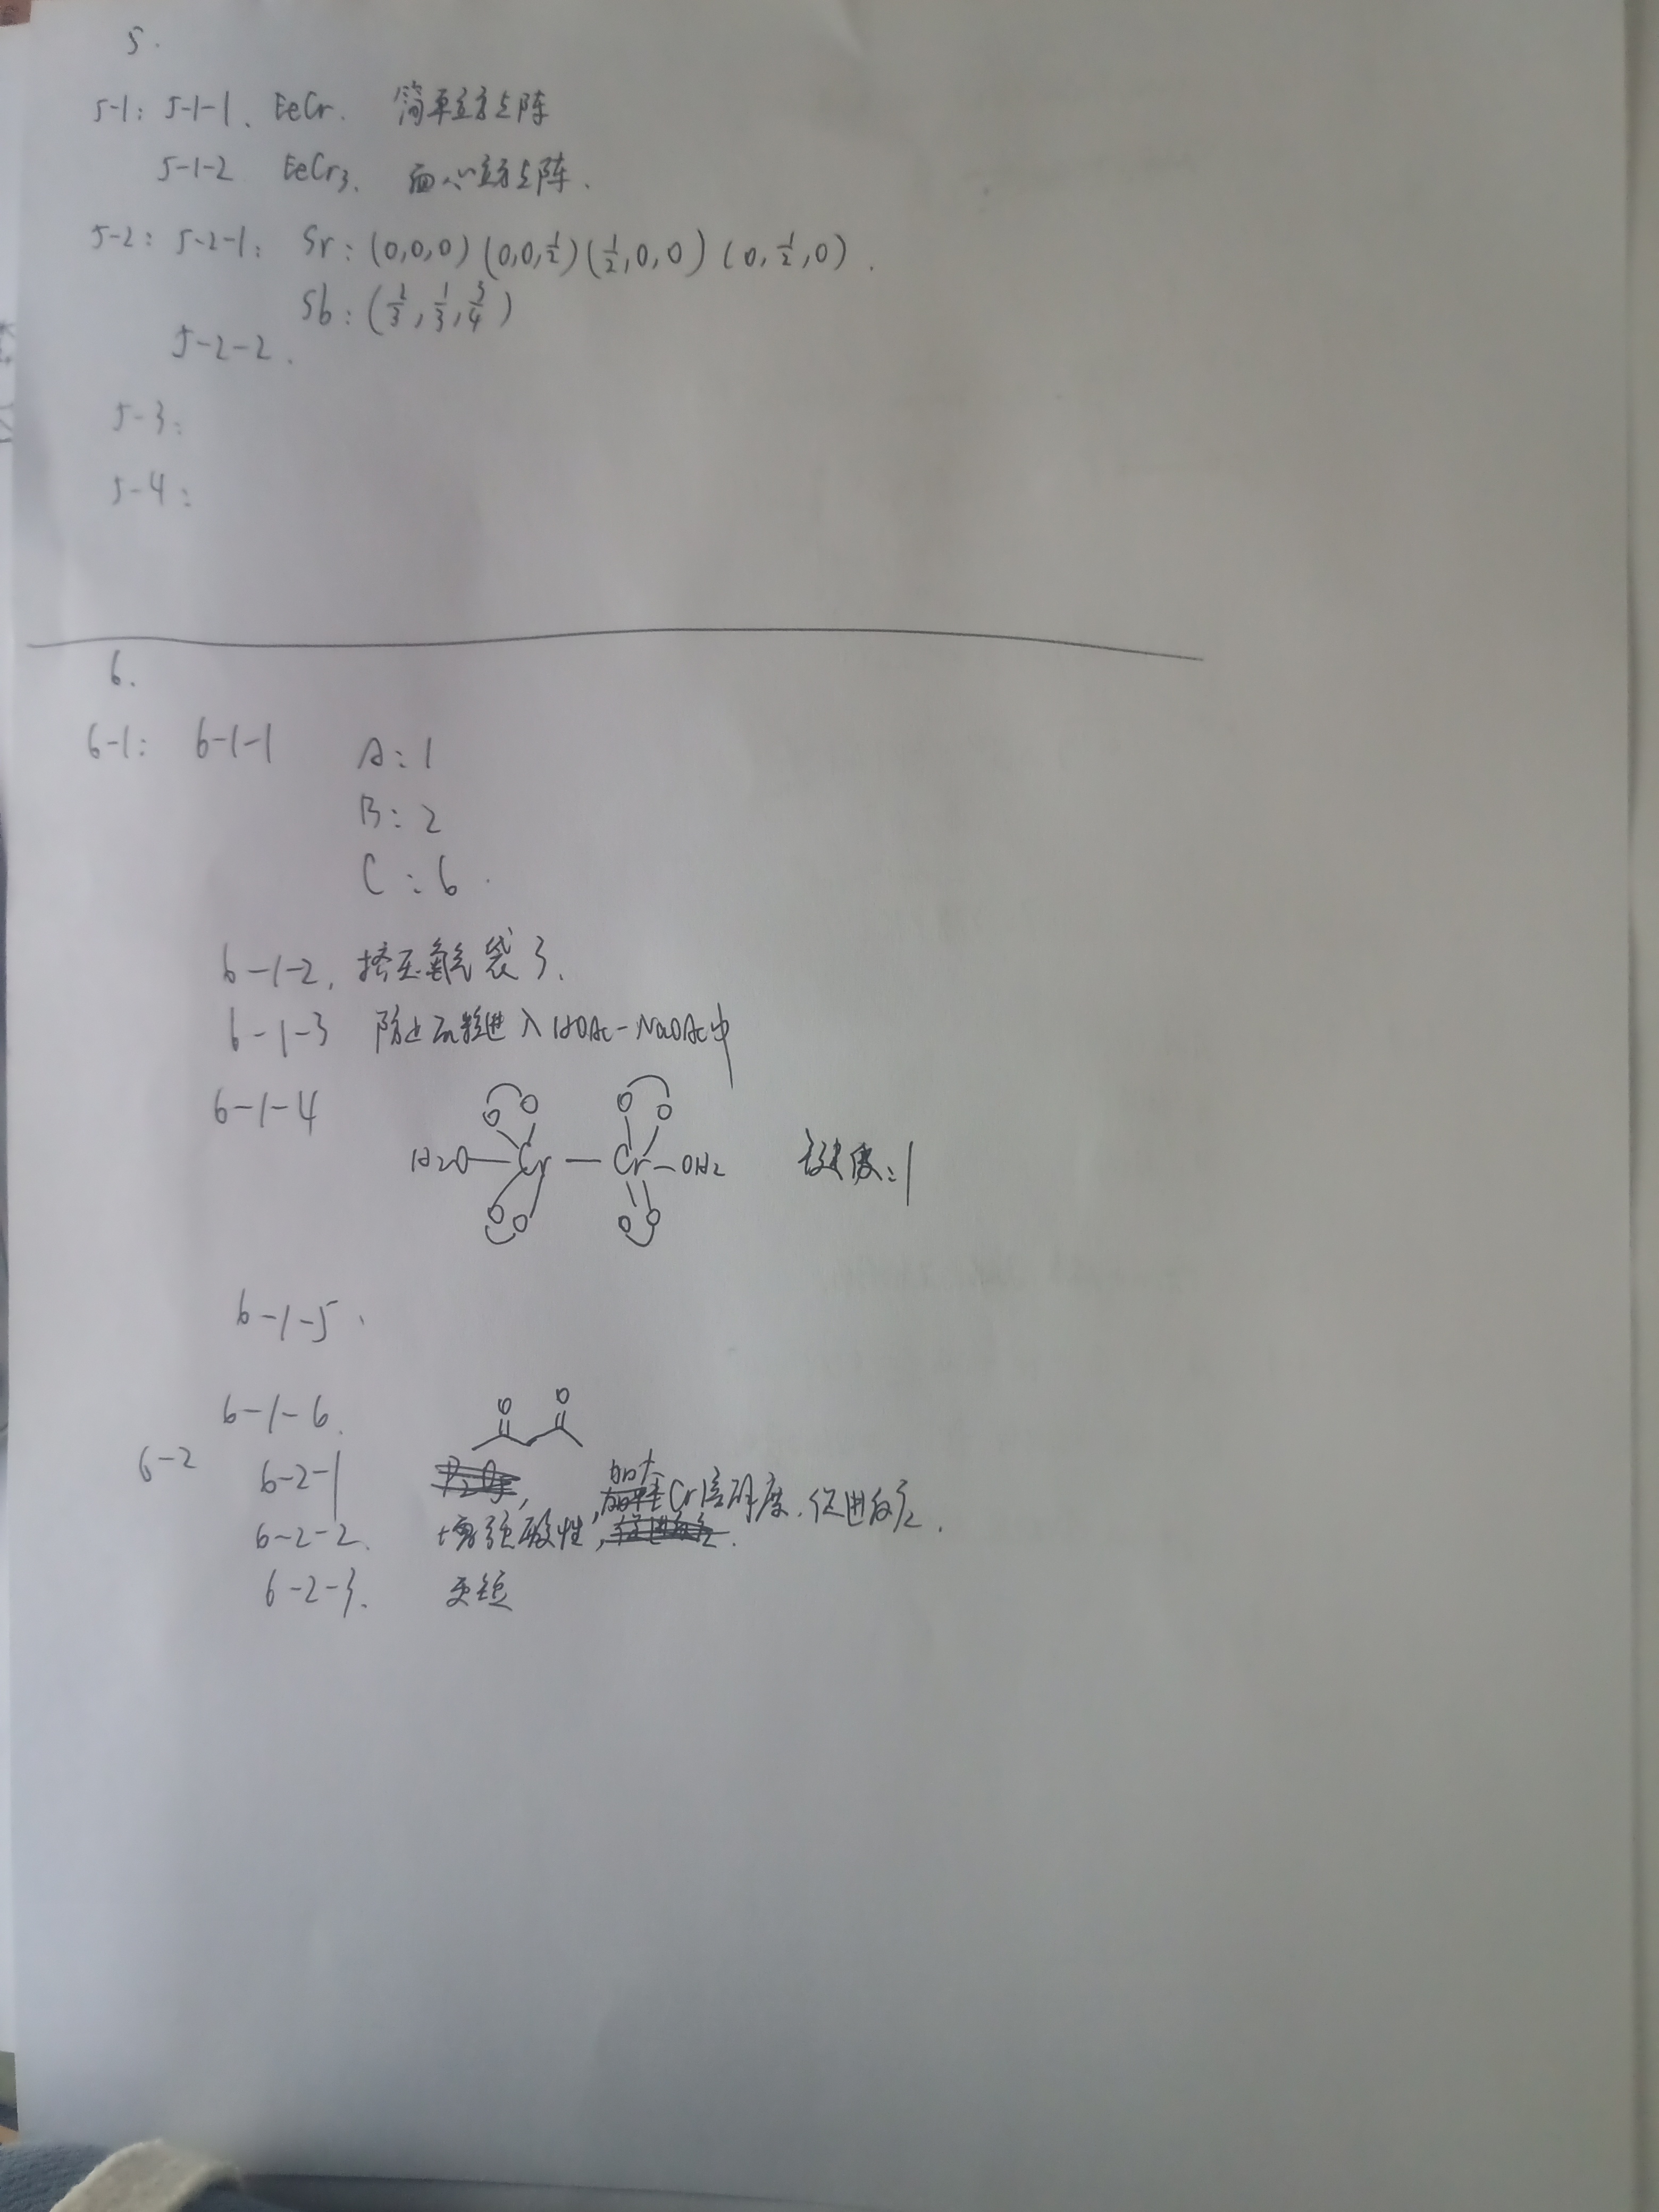 5.
5-1: 5-1-1、 EeCr. 简单立方点阵
5-1-2 EeCr₃. 面心立方点阵.
5-2: 5-2-1: Sr: (0,0,0) (0,0,1/2) (1/2,0,0) (0,1/2,0).
Sb: (2/3,1/3,3/4)
5-2-2.
5-3:
5-4:
6.
6-1: 6-1-1 A:1
B:2
C:6.
6-1-2, 挤压氮气袋3.
6-1-3 防止 进入HOAc-NaOAc中
6-1-4 O O O O
H₂O Cr Cr OH₂ 键级:1
O O O O
6-1-5.
6-1-6.
O O
6-2 6-2-1
加大Cr溶解度.促进反应.
6-2-2. 增强酸性,
6-2-3. 更短